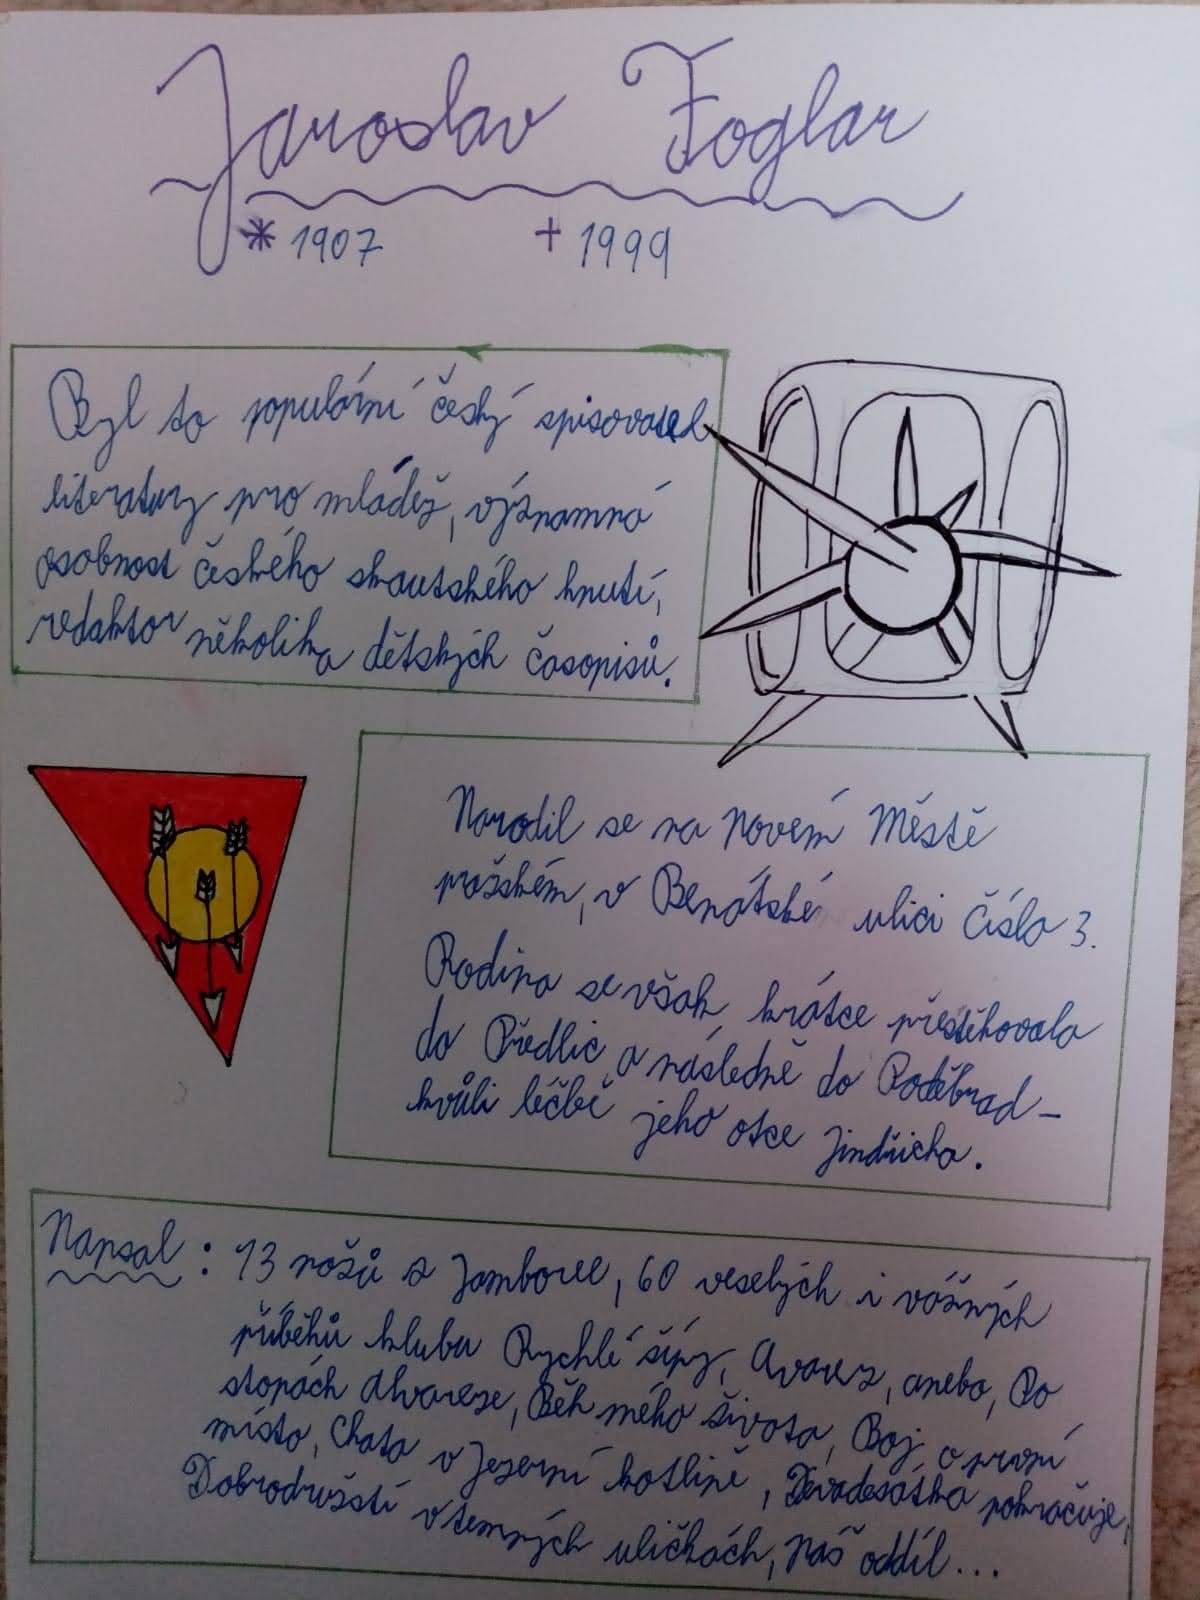 Jaroslav Foglar
* 1907 + 1999
Byl to populární český spisovatel
literatury pro mládež, významná
osobnost českého skautského hnutí,
redaktor několika dětských časopisů.
Narodil se na Novém Městě
pražském, v Benátské ulici číslo 3.
Rodina se však krátce přestěhovala
do Předlic a následně do Poděbrad -
kvůli léčbě jeho otce Jindřicha.
Napsal : 13 roků s Jamboree, 60 veselých i vážných
příběhů klubu Rychlé šípy, anebo, Po
stopách Alvareze, Běh mého života, Boj o první
místo, Chata v Jezerní kotlině, Devadesátka pokračuje,
Dobrodružství v temných uličkách, Náš oddíl...